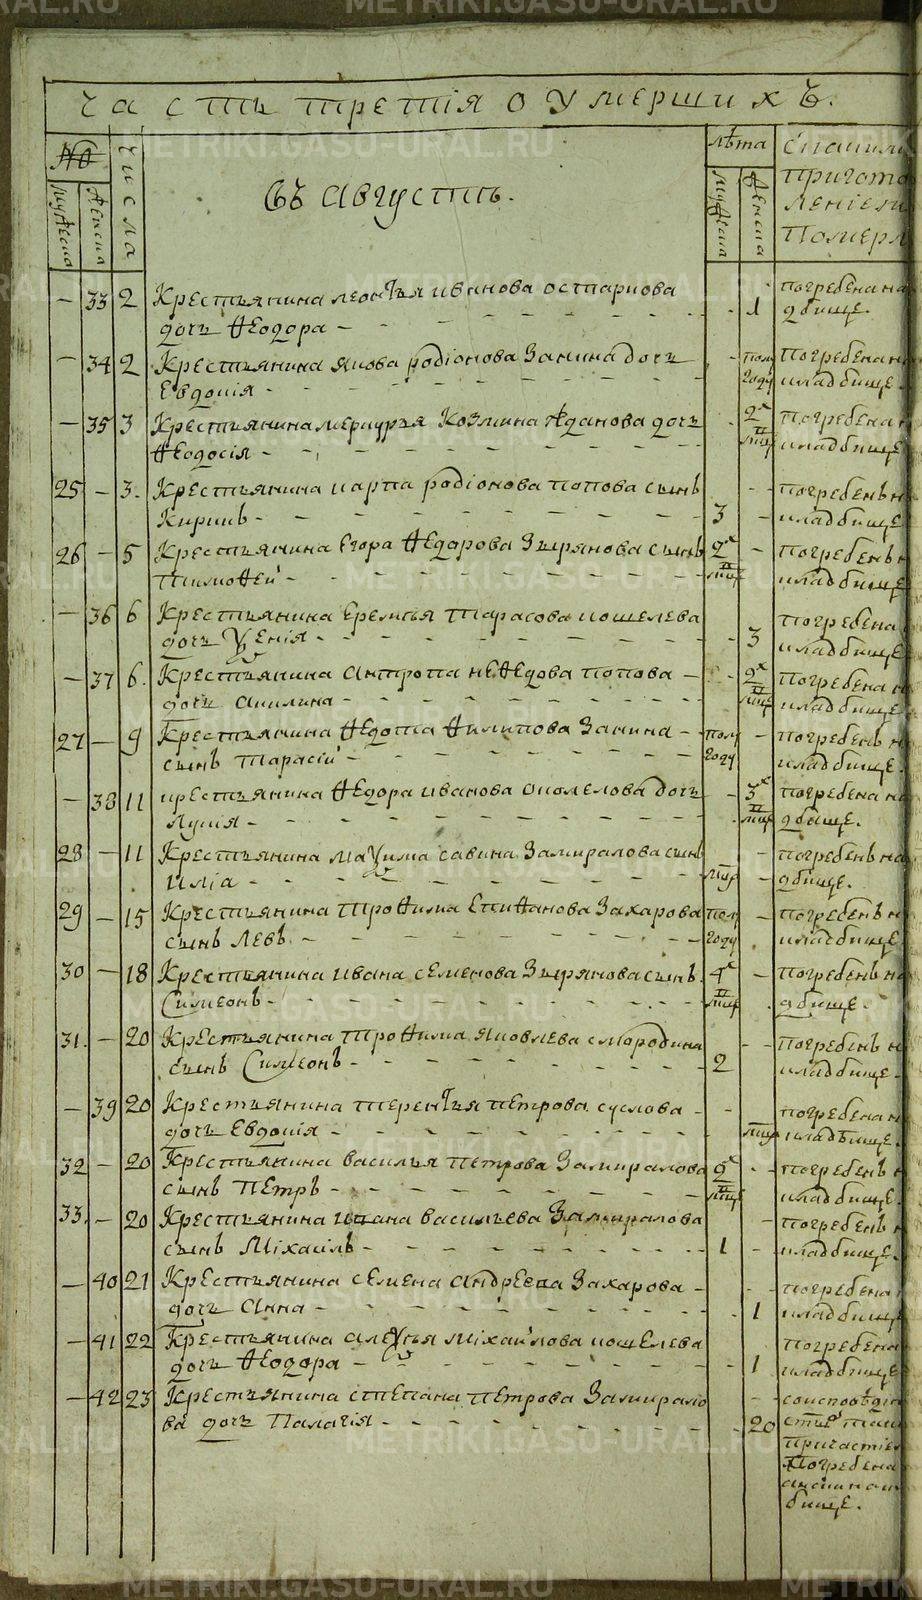 часть третія о умершихъ.
№
мужеска
женска
числа
въ августѣ.
лѣта
мужеска
женска
пригото
леніем
помер
— 33 2 Крестьянина леонтья иванова
дочь Ѳеодора — 1
погребена на
дбище.
— 34 2 Крестьянина якова родіонова Занина дочь
Евдокія — полу году
погребена н
кладбище.
— 35 3 Крестьянина меркурья Козмина жданова дочь
Ѳеодосія — 2х мцъ
погребена н
кладбище
25 — 3. Крестьянина карпа родіонова попова сынъ
Кирикъ — 3 —
погребенъ н
кладбище
26 — 5 Крестьянина Егора Ѳедорова Зырянова сынъ
Тимоѳей — 2х мцъ —
погребенъ н
кладбище
— 36 6 Крестьянина Еремѣя Тарасова кошелева
дочь Ѯенія — 3
погребена
кладбище.
— 37 6. Крестьянина антропа неѲедова попова —
дочь акилина — 2х мцъ
погребена н
кладбище.
27 — 9 Крестьянина Ѳедота Ѳилипова Занина —
сынъ Тарасій — полу году —
погребенъ н
кладбище.
— 38 11 крестьянина Ѳедора иванова дочь
Лукія — 3х мцъ
погребена на
дбище.
28 — 11 Крестьянина маѯима савина Замиралова сынъ
Иліа — мцъ —
погребенъ на
дбище.
29 — 15 Крестьянина ТроѲима ЕпиѲанова Захарова
сынъ Левъ — полу году —
погребенъ н
кладбище
30 — 18 Крестьянина ивана семенова Зырянова сынъ
Симеонъ — 4х мцъ —
погребенъ на
дбище.
31. — 20 Крестьянина ТроѲима яковлева смородина
сынъ Симеонъ — 2
погребенъ н
кладбище.
— 39 20 Крестьянина терентья петрова суслова —
дочь Евдокія — мцъ
погребена н
кладбище.
32 — 20 Крестьянина василья петрова Замиралова
сынъ Петръ — 2х мцъ
погребенъ н
кладбище.
33. — 20 Крестьянина васильева Замиралова
сынъ Міхаилъ — 1 —
погребенъ н
кладбище.
— 40 21 Крестьянина семена андреева Захарова —
дочь анна — 1
погребена н
кладбище
— 41 22 Крестьянина алеѯѣя міхаилова кошелева
дочь Ѳеодора — 1
погребена
кладбище.
— 42 23 Крестьянина степана петрова Замирало
ва дочь Палагія — 20
причастіем
погребена
бище.
METRIKI.GASO-URAL.RU